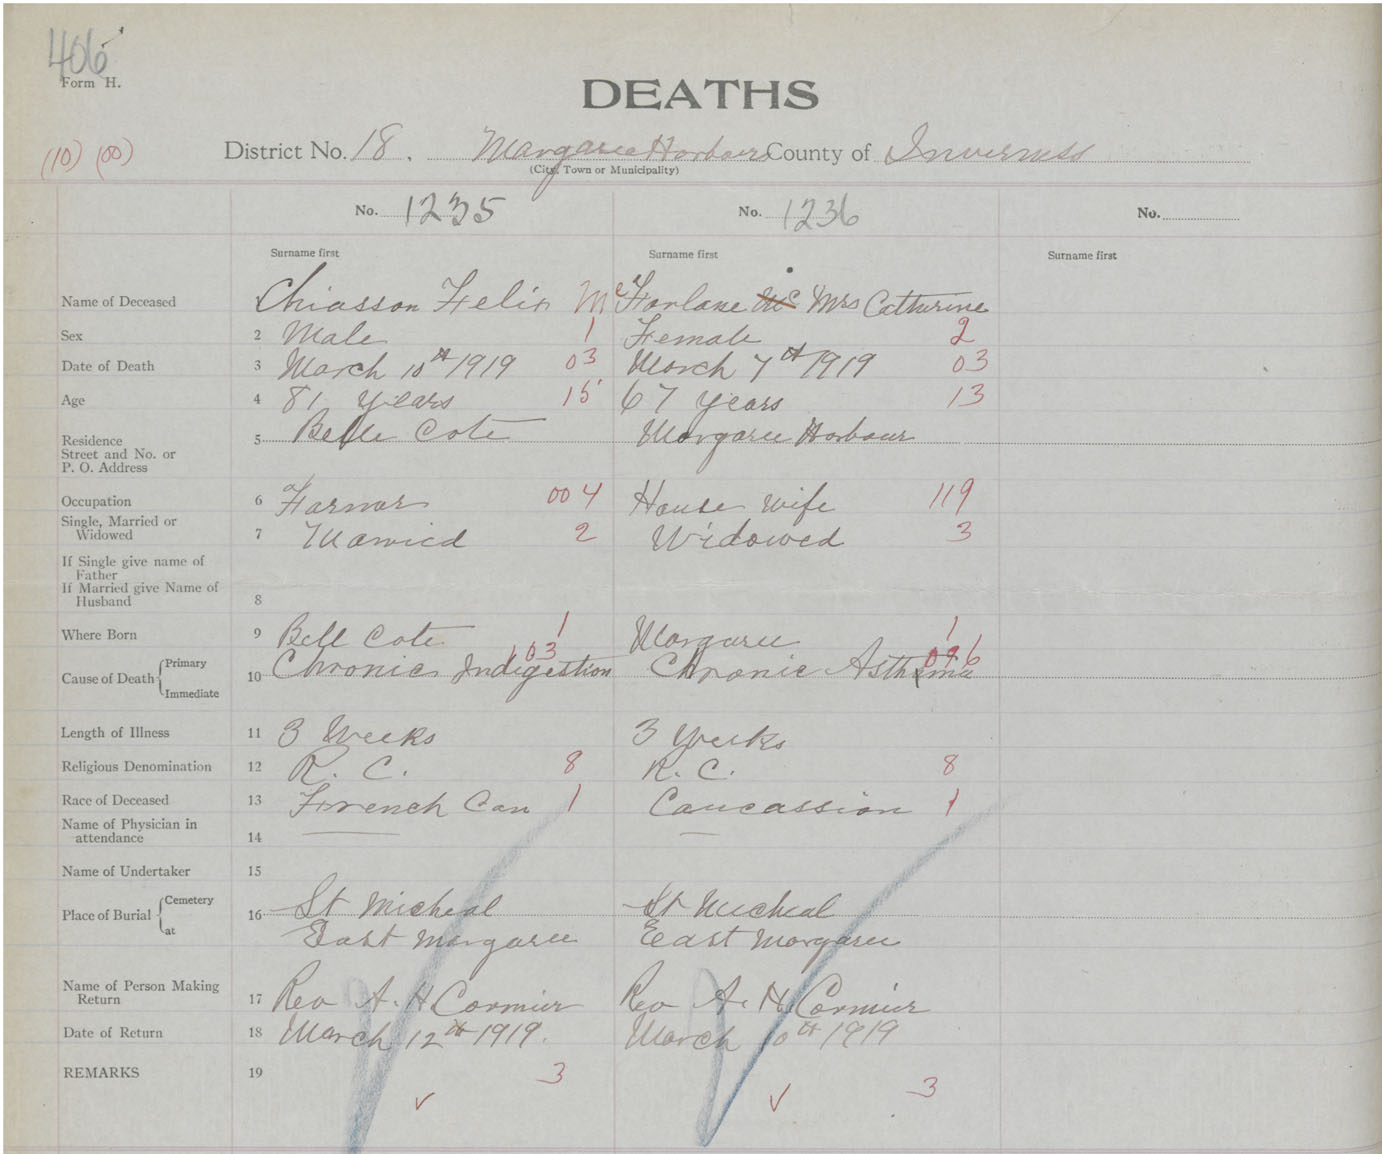 406
Form H.
DEATHS
(10) (00)
District No. 18. Margaree Harbour County of Inverness
(City, Town or Municipality)
No. 1235 No. 1236 No.
Surname first Surname first Surname first
Name of Deceased Chiasson Felix Mc Farlane Mc Mrs Catherine
Sex 2 Male 1 Female 2
Date of Death 3 March 10th 1919 03 March 7th 1919 03
Age 4 81 years 15 67 years 13
Residence 5 Belle Cote Margaree Harbour
Street and No. or
P. O. Address
Occupation 6 Farmar 004 House Wife 119
Single, Married or
Widowed 7 Married 2 Widowed 3
If Single give name of
Father
If Married give Name of
Husband 8
Where Born 9 Bell Cote 1 Margaree 1
103 096
Cause of Death Primary 10 Chronic Indigestion Chronic Asthma
Immediate
Length of Illness 11 3 Weeks 3 Weeks
Religious Denomination 12 R. C. 8 R. C. 8
Race of Deceased 13 French Can 1 Caucassion 1
Name of Physician in
attendance 14
Name of Undertaker 15
Place of Burial Cemetery 16 St Micheal St Micheal
at East Margaree East Margaree
Name of Person Making
Return 17 Rev A. H Cormier Rev A. H. Cormier
Date of Return 18 March 12th 1919. March 10th 1919
REMARKS 19 3 3